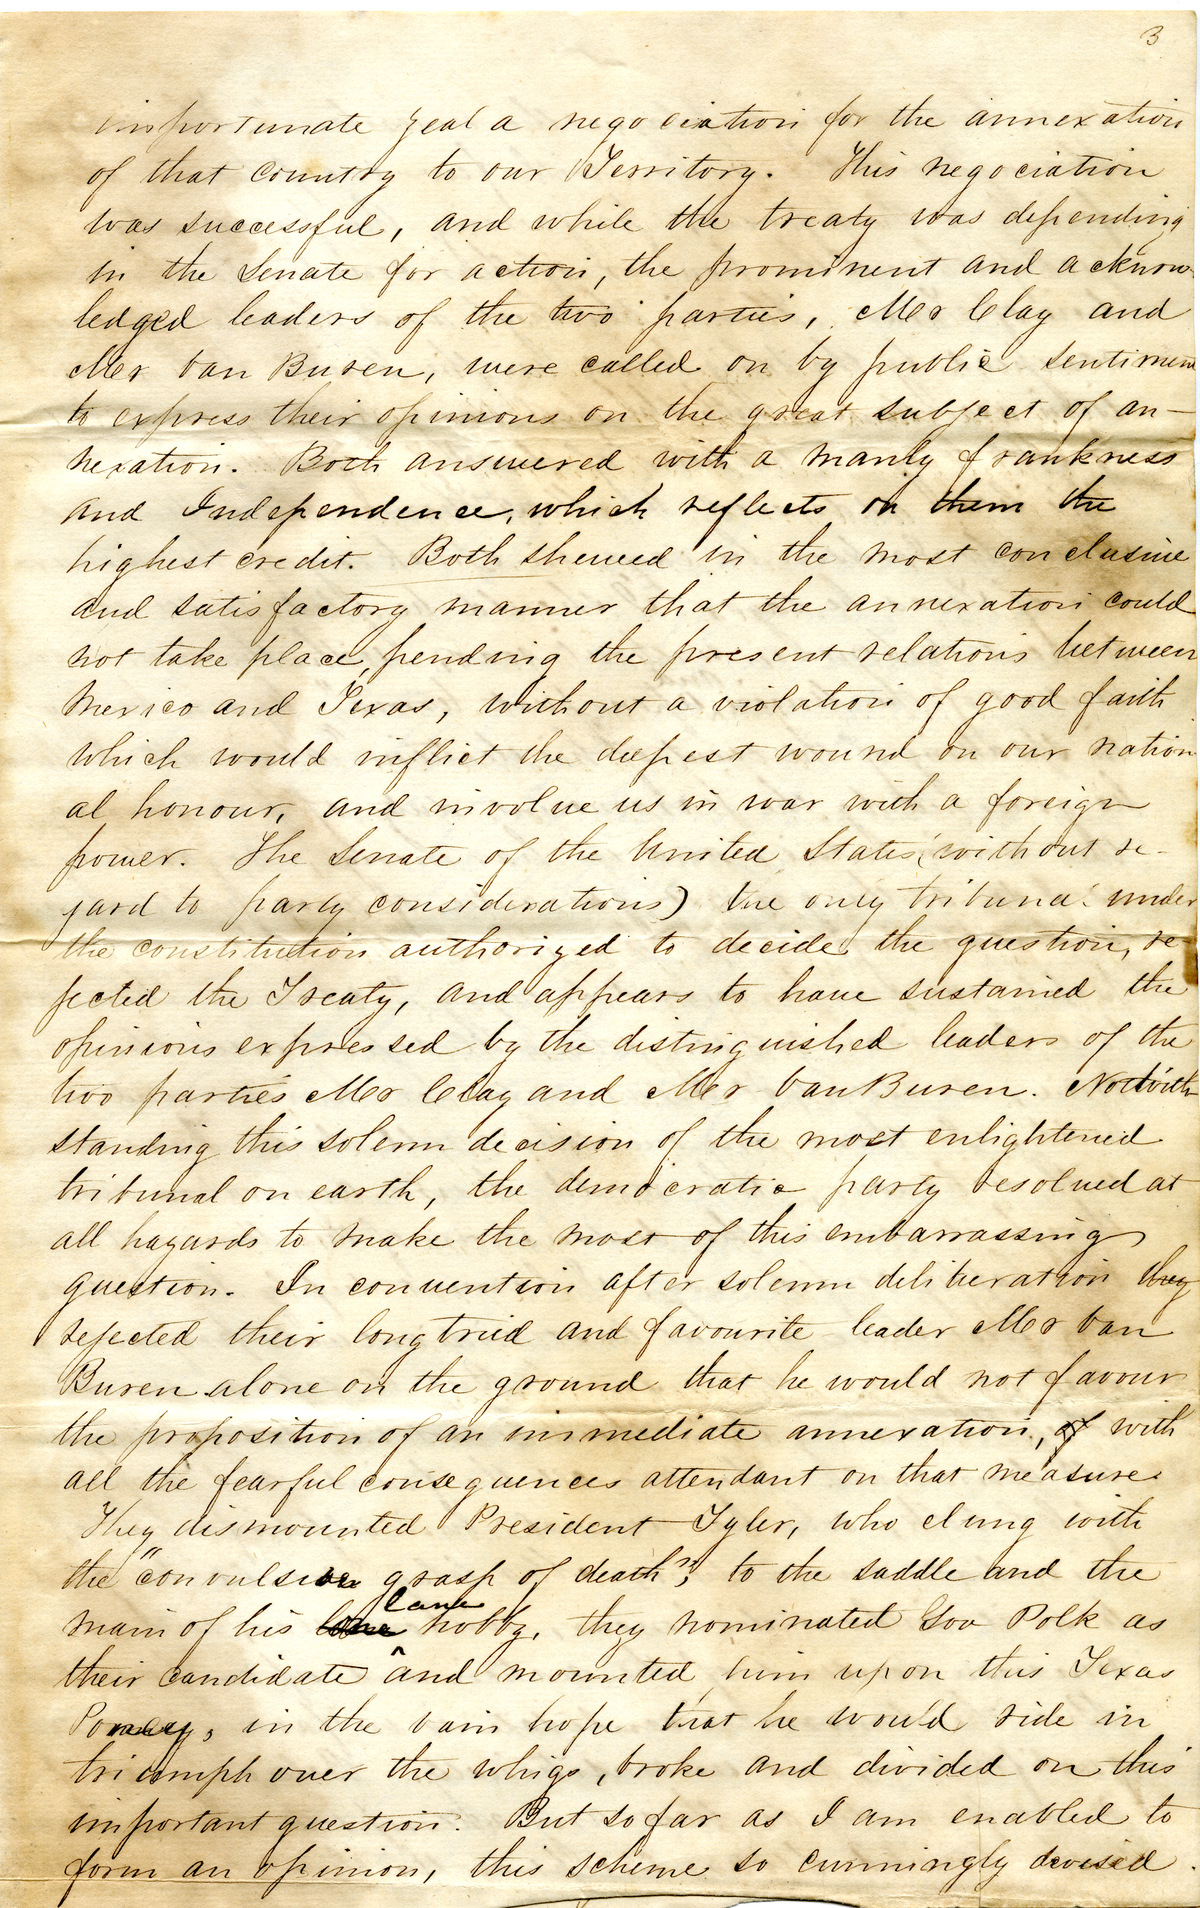 3
importunate zeal a negociation for the annexation
of that country to our Territory. This negociation
was successful, and while the treaty was depending
in the Senate for action, the prominent and acknow-
ledged leaders of the two parties, Mr Clay and
Mr van Buren, were called on by public sentiment
to express their opinions on the great subject of an-
nexation. Both answered with a manly frankness
and Independence, which reflects on them the
highest credit. Both shewed in the most conclusive
and satisfactory manner that the annexation could
not take place, pending the present relations between
Mexico and Texas, without a violation of good faith
which would inflict the deepest wound on our nation
al honour, and involve us in war with a foreign
power. The Senate of the United States (without re-
gard to party considerations) the only tribunal under
the constitution authorized to decide the question, re-
jected the Treaty, and appears to have sustained the
opinions expressed by the distinguished leaders of the
two parties Mr Clay and Mr Van Buren. Notwith
standing this solemn decision of the most enlightened
tribunal on earth, the democratic party resolved at
all hazards to make the most of this embarrassing
question. In convention after solemn deliberation they
rejected their long tried and favourite leader Mr van
Buren alone on the ground that he would not favour
the proposition of an immediate annexation, of with
all the fearful consequences attendant on that measure
They dismounted President Tyler, who clung with
the "convulsive grasp of death", to the saddle and the
main of his lame hobby, they nominated Gov Polk as
their candidate and mounted him upon this Texas
Poney, in the vain hope that he would ride in
triumph over the whigs, broke and divided on this
important question. But so far as I am enabled to
form an opinion, this scheme so cunningly devised.